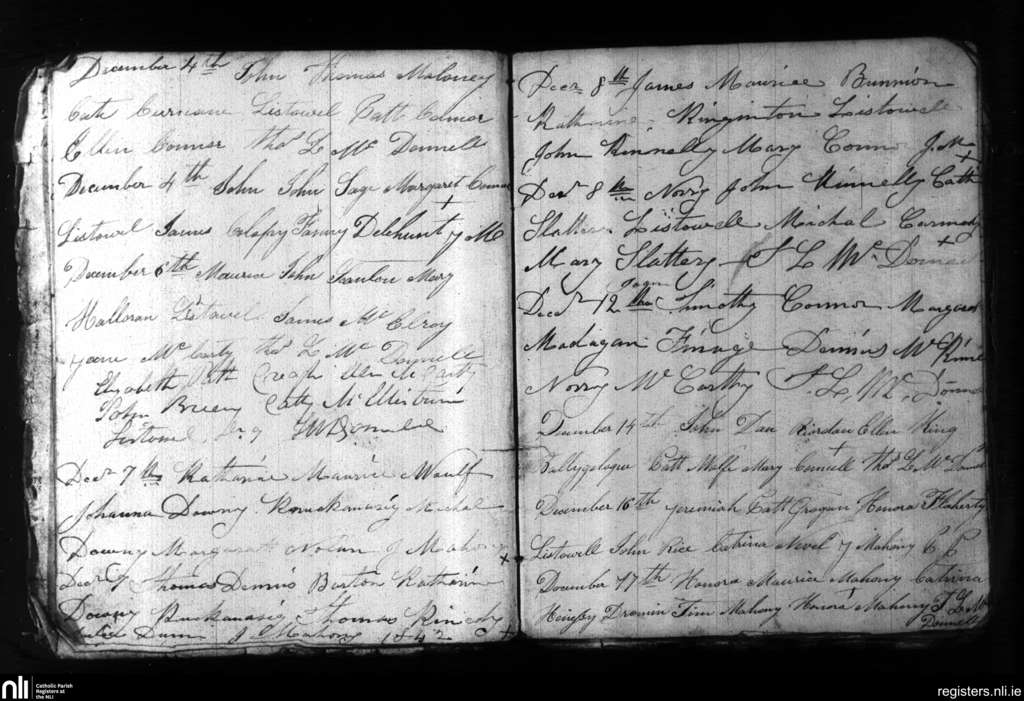 December 4th John Thomas Maloney
Cath Curreane Listowel Patt Connor
Ellen Connor Thos L Mc Donnell
December 4th John John Sage Margaret Connor
Listowel James Fanny Delehunt J M
December 6th Maurice John Scanlon Mary
Halloran Listowel James Mc Elroy
Mc Carty Thos L Mc Donnell
Elizabeth Patt Creagh Ellen McCarty
John Catty
Listowel
Decr 7th Katharine Maurice Woulf
Johanna Downy Knuckanasig Michal
Downy Margaratt Nolan J Mahony
Decr 7 Thomas Dennis Barton Katharine
Downy Thomas
Dunn J Mahony 1842
Decr 8th James Maurice Bunnion
Katharine Kington Listowell
John Kennelly Mary Conn J M
Decr 8th Norry John Kinnelly Cath
Slattery Listowell Michal Carmody
Mary Slattery T L Mc Donnell
Decr 12th Timothy Connor Margaret
Madagan Finuge Dennis Mc
Norry Mc Carthy T L Mc Donnell
December 14th John Dan Riordan Ellen King
Ballygologue Patt Wolfe Mary Connell Thos L Mc Donnell
December 16th Jeremiah Patt Grogan Honora Flaherty
Listowell John Rice Catrina Nevel J Mahony C C
December 17th Honora Maurice Mahony Catrina
Dromin Tim Mahony Honora Mahony T L Mc
Donnell
nli
Catholic Parish
Registers at
the NLI
registers.nli.ie